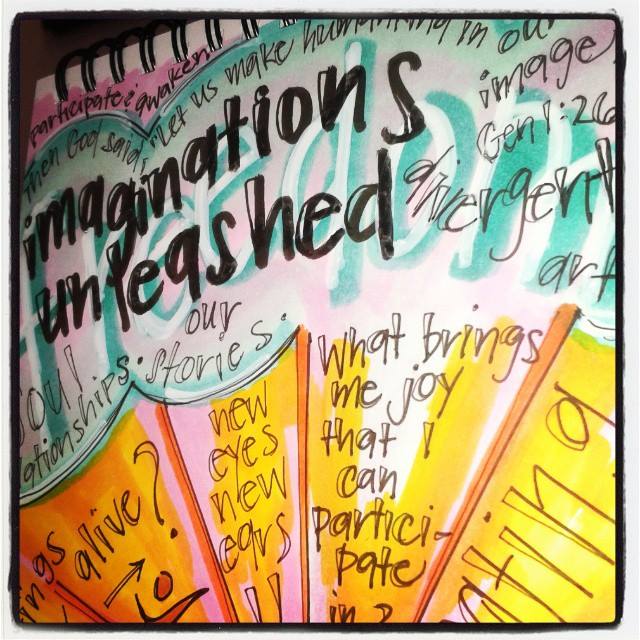 participate & awaken
Then God said, "Let us make humankind in our
image
Gen 1:26
freedom
imaginations
unleashed
divergent
art
our
stories.
soul
ationships.
What brings
me joy
that I
can
partici-
pate
in?
new
eyes
new
ears
ngs
alive?
ating